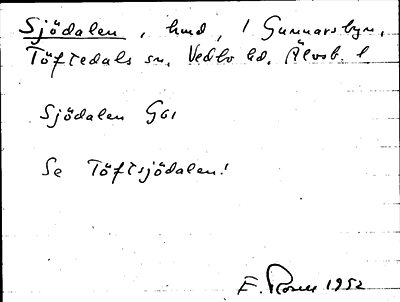 Sjödalen, hmd, i Gunnarsbyn,
Töftedals sn. Vedbo hd. Älvsb. l
Sjödalen GS1
Se Töftsjödalen!
F. Rosen 1952